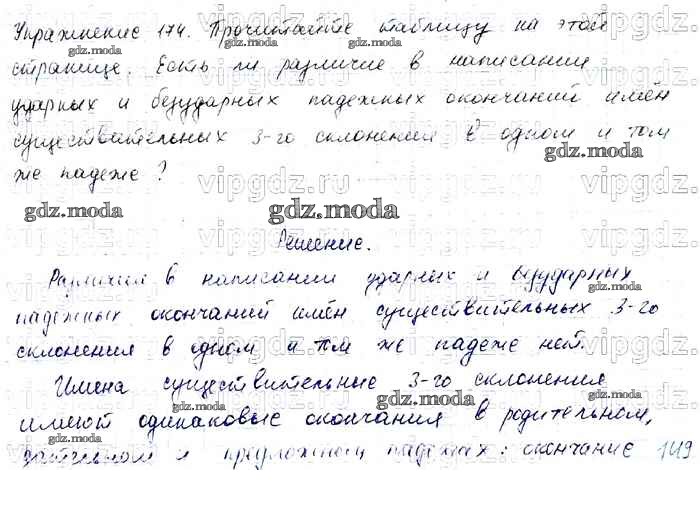 Упражнение 174. Прочитайте таблицу на этой
странице. Есть ли различие в написании
ударных и безударных падежных окончаний имён
существительных 3-го склонения в одном и том
же падеже?
Решение.
Различия в написании ударных и безударных
падежных окончаний имён существительных 3-го
склонения в одном и том же падеже нет.
Имена существительные 3-го склонения
имеют одинаковые окончания в родительном,
дательном и предложном падежах: окончание 149
gdz.moda
vipgdz.ru